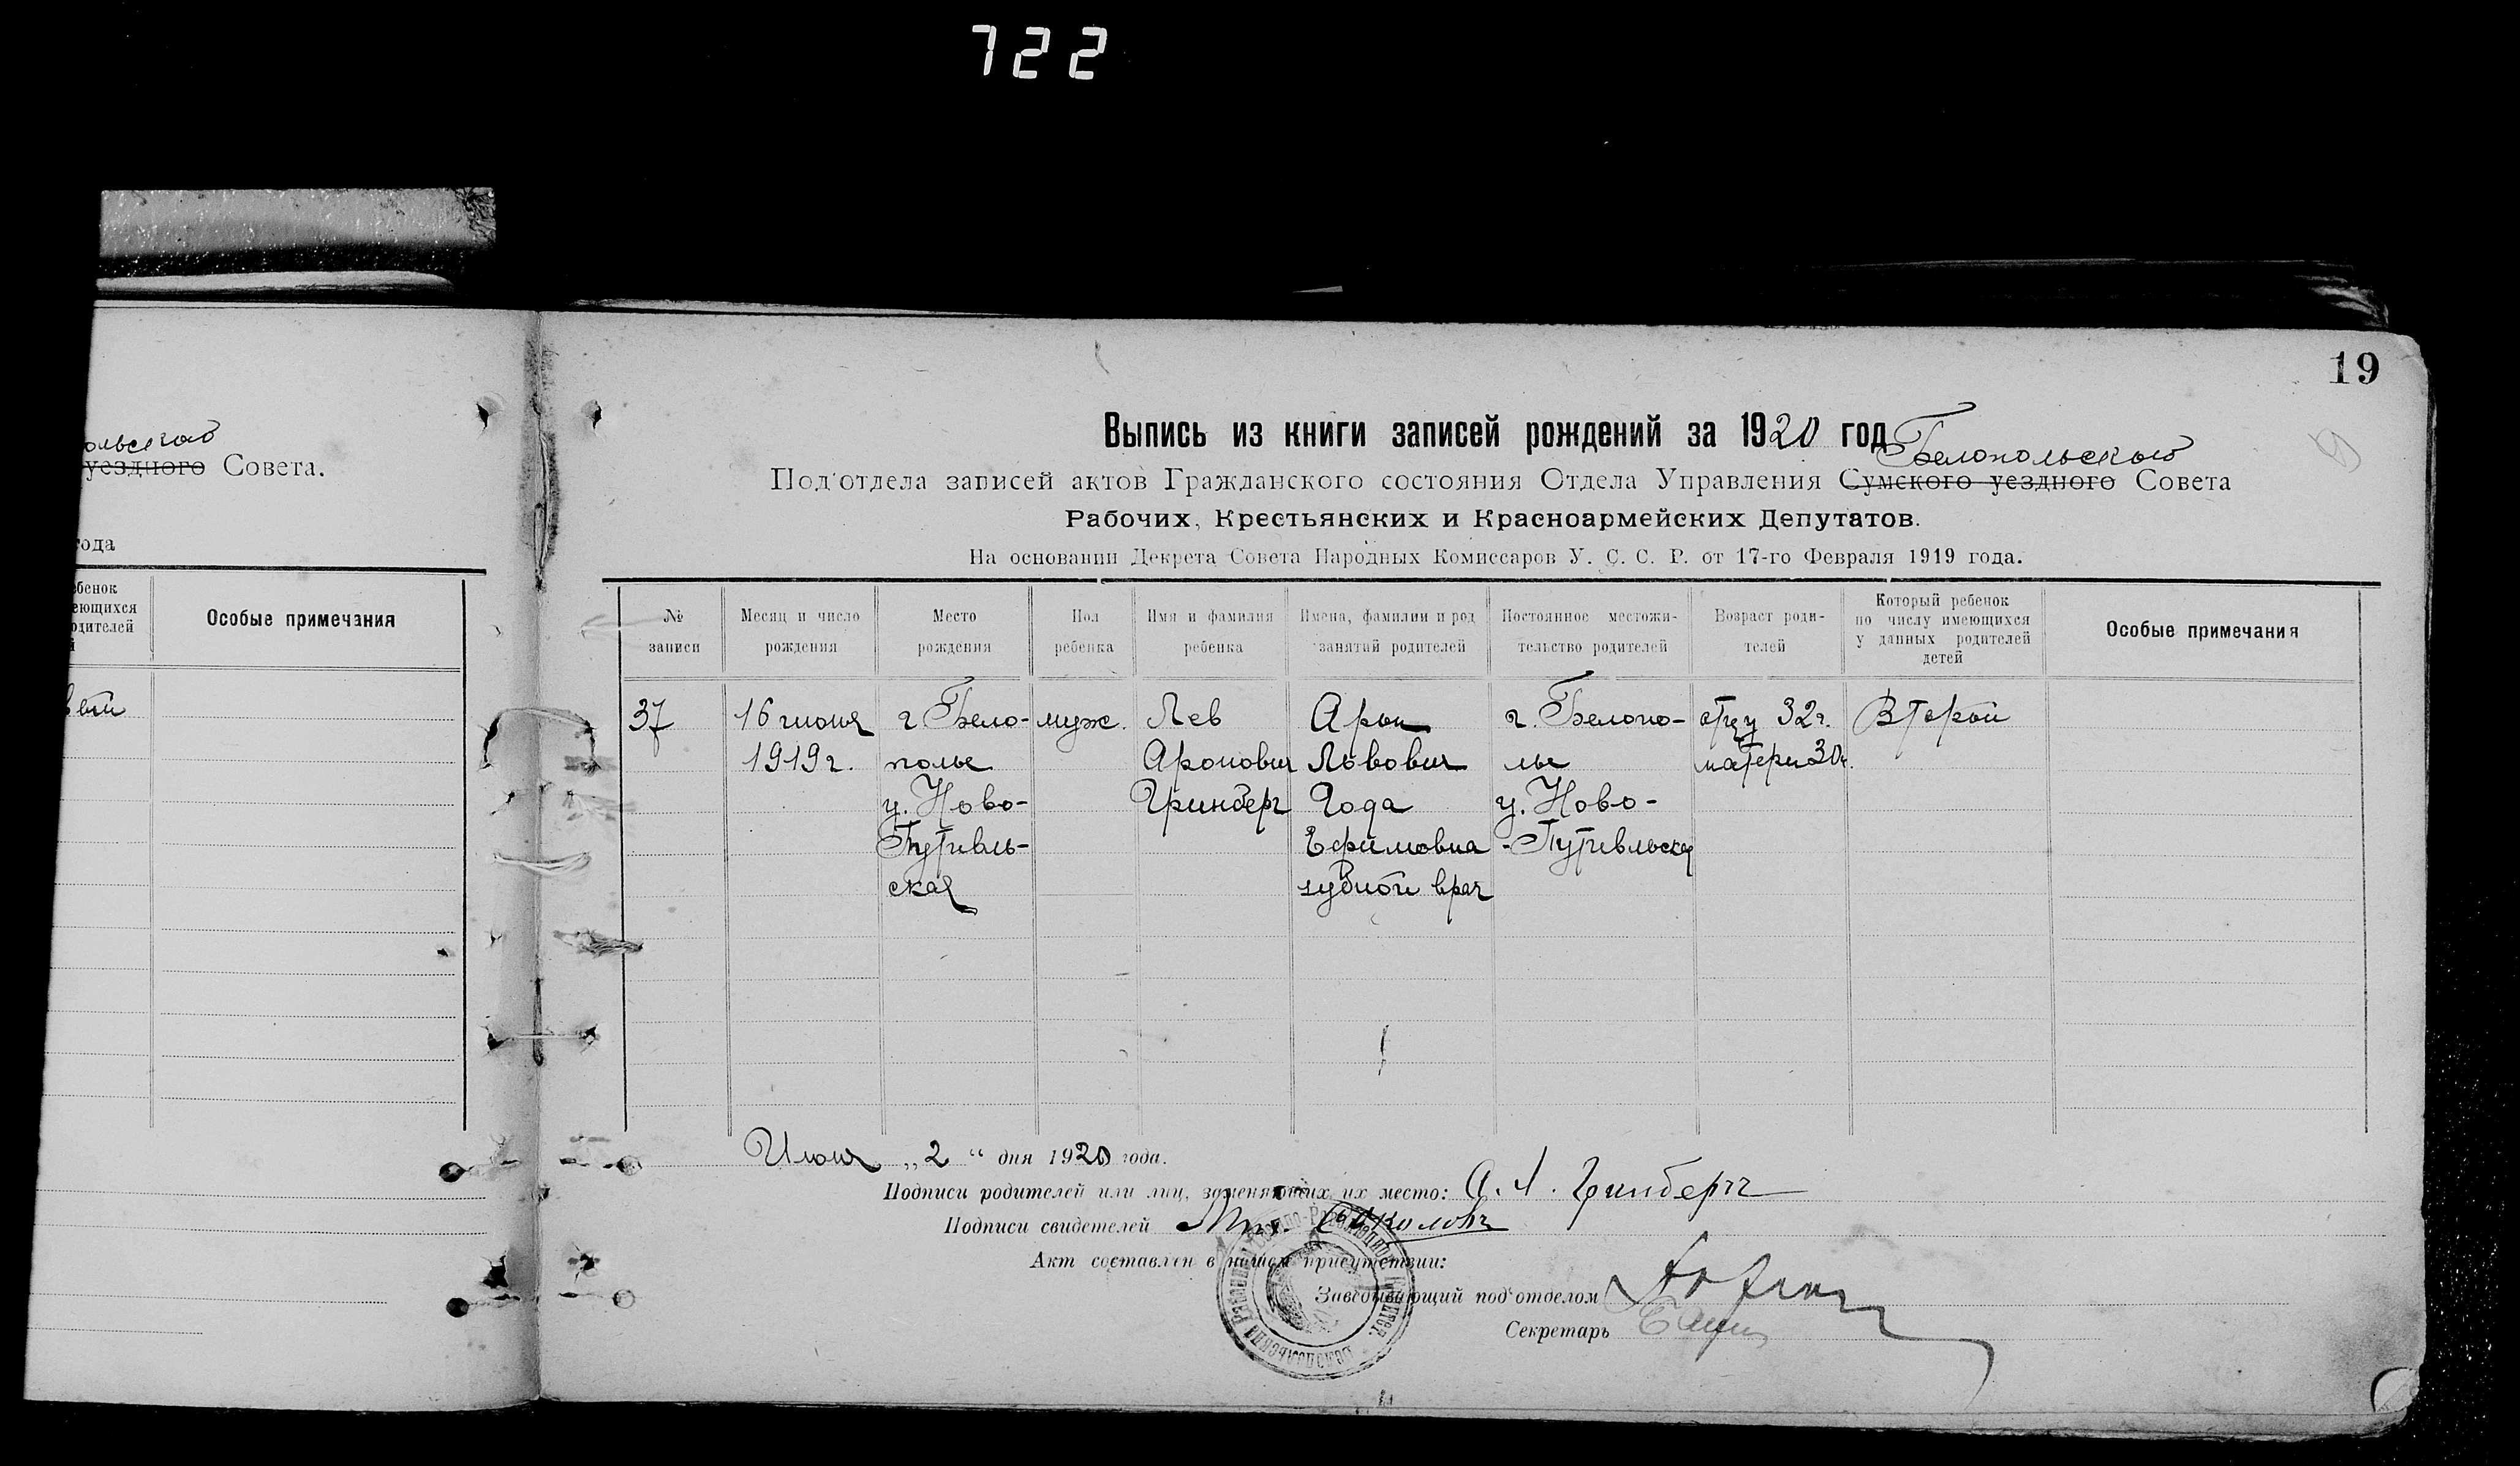 722
19
ольского
уездного Совета.
года
ебенок
еющихся
одителей
й
Особые примечания
Выпись из книги записей рождений за 1920 год
Белопольского
Под'отдела записей актов Гражданского состояния Отдела Управления Сумского уездного Совета
Рабочих, Крестьянских и Красноармейских Депутатов.
На основании Декрета Совета Народных Комиссаров У. С. С. Р. от 17-го Февраля 1919 года.
№ записи
Месяц и число рождения
Место рождения
Пол ребенка
Имя и фамилия ребенка
Имена, фамилии и род занятий родителей
Постоянное местожи-тельство родителей
Возраст роди-телей
Который ребенок по числу имеющихся у данных родителей детей
Особые примечания
37
16 июня
1919 г.
г Бело-
полье
у. Ново-
Путивль-
ская
муж.
Лев
Аронович
Гринберг
Арон
Львович
Года
Ефимовна
зубной врач
г. Белопо-
лье
у. Ново-
-Путивльская
отцу 32 г.
матери 30 г.
Второй
Июня „2“ дня 1920 года.
Подписи родителей или лиц, заменяющих их место: А. Л. Гринберг
Подписи свидетелей Соколовъ
Акт составлен в нашем присутствии:
Заведывающий под'отделом
Секретарь